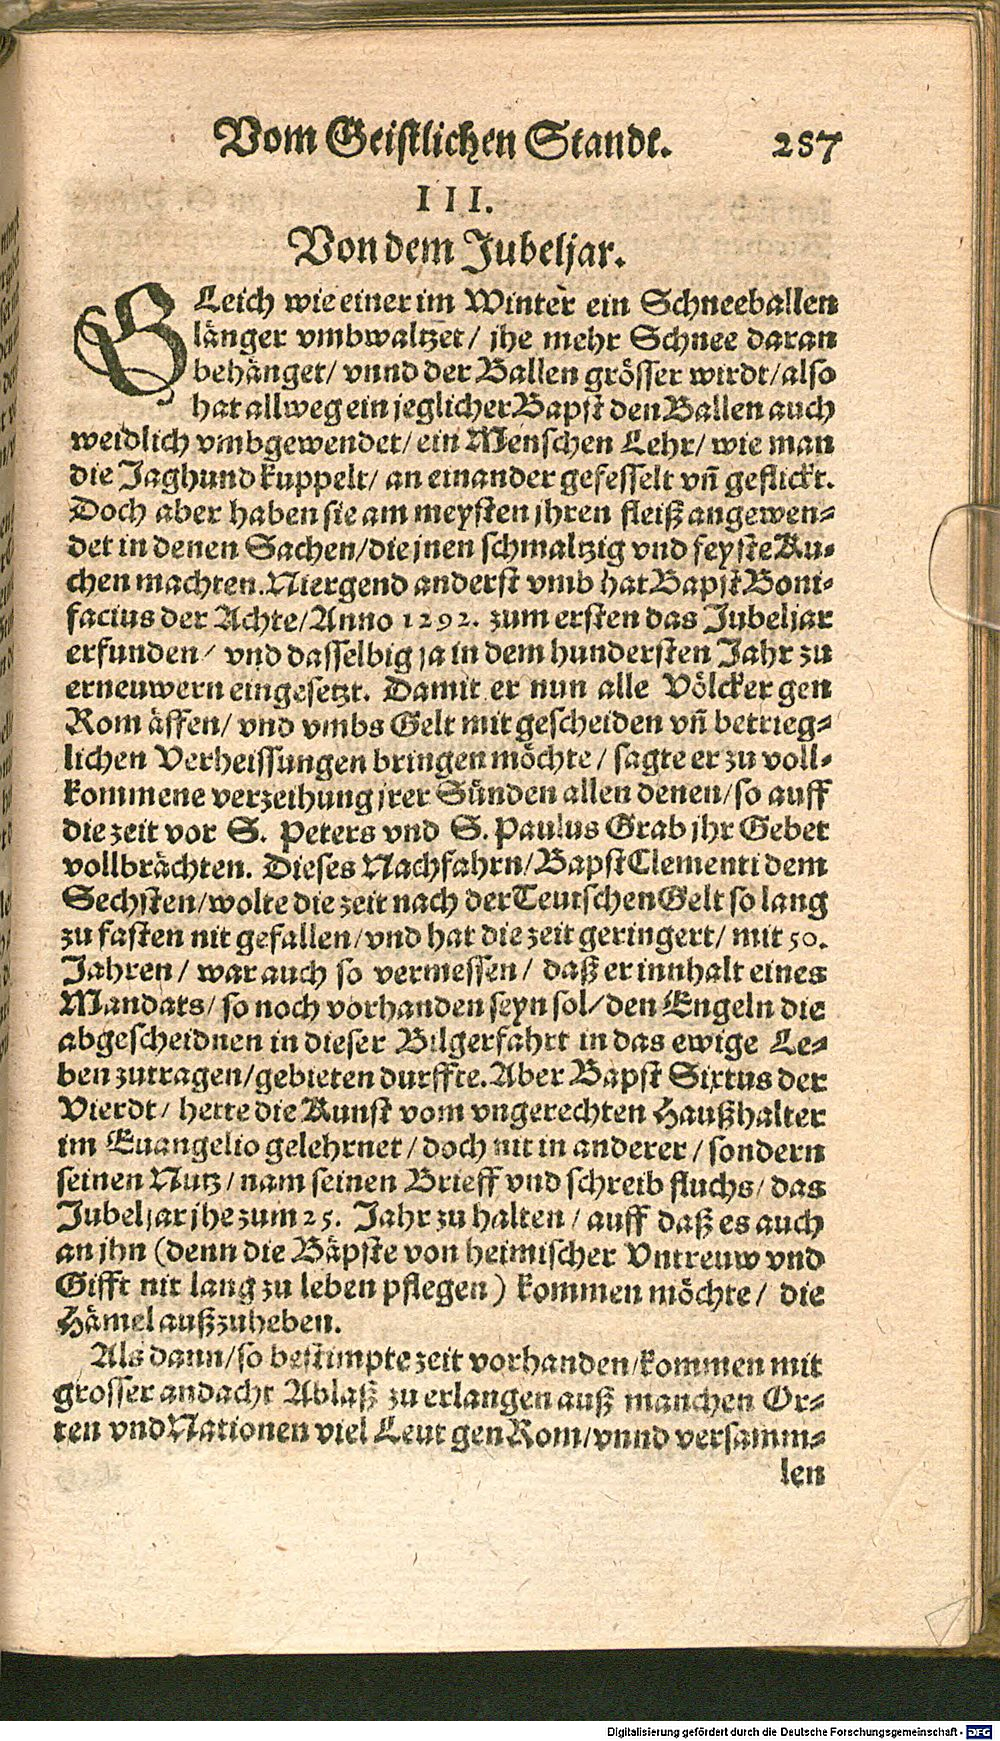 Vom Geistlichen Standt. 287
III.
Von dem Jubeljar.
GLeich wie einer im Winter ein Schneeballen
länger vmbwaltzet/ jhe mehr Schnee daran
behänget/ vnnd der Ballen grösser wirdt/also
hat allweg ein jeglicher Bapst den Ballen auch
weidlich vmbgewendet/ ein Menschen Lehr/ wie man
die Jaghund kuppelt/ an einander gefesselt vñ geflickt.
Doch aber haben sie am meysten jhren fleiß angewen-
det in denen Sachen/die jnen schmaltzig vnd feyste Ku-
chen machten. Niergend anderst vmb hat Bapst Boni-
facius der Achte/Anno 1292. zum ersten das Jubeljar
erfunden/ vnd dasselbig ja in dem hundersten Jahr zu
erneuwern eingesetzt. Damit er nun alle Völcker gen
Rom äffen/ vnd vmbs Gelt mit gescheiden vñ betrieg-
lichen Verheissungen bringen möchte/ sagte er zu voll-
kommene verzeihung jrer Sünden allen denen/so auff
die zeit vor S. Peters vnd S. Paulus Grab jhr Gebet
vollbrächten. Dieses Nachfahrn/Bapst Clementi dem
Sechsten/wolte die zeit nach der Teutschen Gelt so lang
zu fasten nit gefallen/vnd hat die zeit geringert/ mit 50.
Jahren/ war auch so vermessen/ daß er innhalt eines
Mandats/ so noch vorhanden seyn sol/den Engeln die
abgescheidnen in dieser Bilgerfahrt in das ewige Le-
ben zutragen/gebieten durffte. Aber Bapst Sixtus der
Vierdt/ hette die Kunst vom vngerechten Haußhalter
im Euangelio gelehrnet/ doch nit in anderer/ sondern
seinen Nutz/ nam seinen Brieff vnd schreib fluchs/ das
Jubeljar jhe zum 25. Jahr zu halten/ auff daß es auch
an jhn (denn die Bäpste von heimischer Vntreuw vnd
Gifft nit lang zu leben pflegen) kommen möchte/ die
Hämel außzuheben.
Als dann/so bestimpte zeit vorhanden/kommen mit
grosser andacht Ablaß zu erlangen auß manchen Or-
ten vnd Nationen viel Leut gen Rom/vnnd versamm-
len
Digitalisierung gefördert durch die Deutsche Forschungsgemeinschaft - DFG